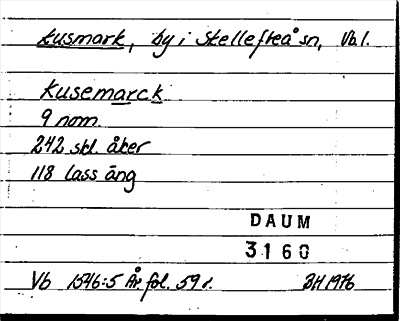 Kusmark, by i Skellefteå sn, Vb.l.
Kusemarck
9 nom.
242 skl. åker
118 lass äng
DAUM
3160
Vb 1546:5 År fol. 59 r. BH 1976